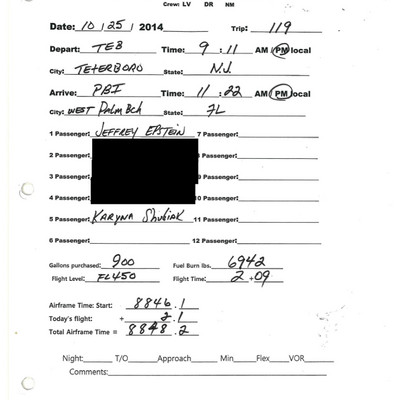 Crew: LV DR NM
Date: 10 / 25 / 2014 Trip: 119
Depart: TEB Time: 9 : 11 AM / PM local
City: TETERBORO State: N.J.
Arrive: PBI Time: 11 : 22 AM / PM local
City: WEST PALM BCH State: FL
1 Passenger: JEFFREY EPSTEIN 7 Passenger:
2 Passenger: 8 Passenger:
3 Passenger: 9 Passenger:
4 Passenger: 10 Passenger:
5 Passenger: KARYNA SHULIAK 11 Passenger:
6 Passenger: 12 Passenger:
Gallons purchased: 900 Fuel Burn lbs. 6942
Flight Level: FL450 Flight Time: 2 + 09
Airframe Time: Start: 8846.1
Today's flight: + 2.1
Total Airframe Time = 8848.2
Night: T/O Approach Min Flex VOR
Comments: